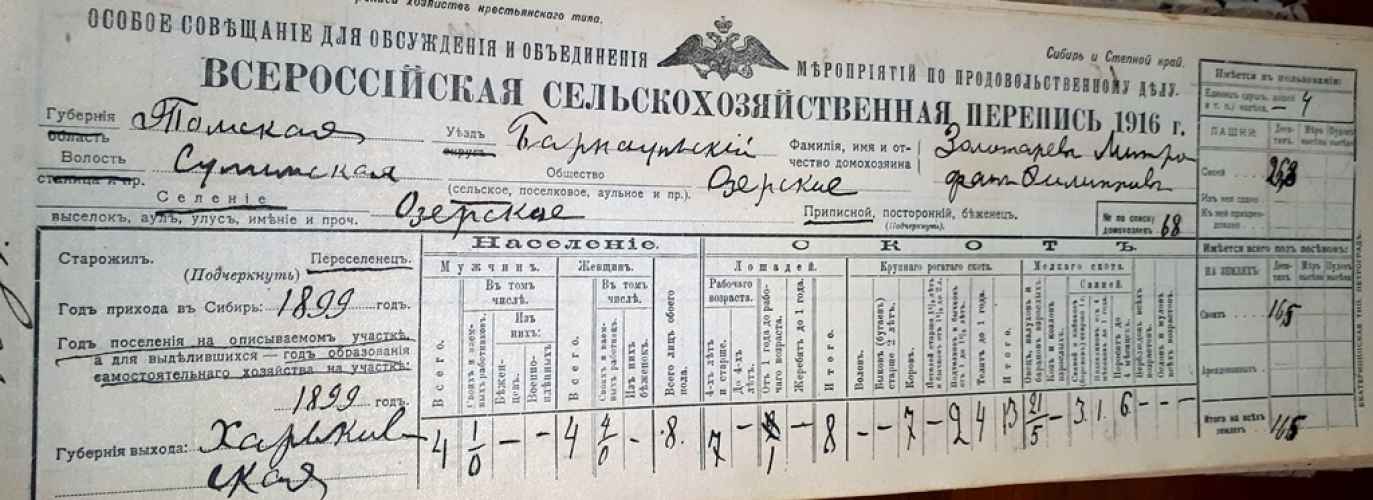 хозяйствъ крестьянскаго типа.
ОСОБОЕ СОВѢЩАНІЕ ДЛЯ ОБСУЖДЕНІЯ И ОБЪЕДИНЕНІЯ МѢРОПРІЯТІЙ ПО ПРОДОВОЛЬСТВЕННОМУ ДѢЛУ.
Сибирь и Степной край.
ВСЕРОССІЙСКАЯ СЕЛЬСКОХОЗЯЙСТВЕННАЯ ПЕРЕПИСЬ 1916 г.
Губернія Томская Уѣздъ Барнаульскій Фамилія, имя и от- Золотаревъ Митро
область округъ чество домохозяина фанъ Филипповъ
Волость Сутинская Общество Озерское
станица и пр. (сельское, поселковое, аульное и пр.)
Селеніе Озерское
выселокъ, аулъ, улусъ, имѣніе и проч. Приписной, посторонній, бѣженецъ.
(Подчеркнуть).
№ по списку домохозяевъ 68
Старожилъ. Переселенецъ.
(Подчеркнуть)
Годъ прихода въ Сибирь: 1899 годъ.
Годъ поселенія на описываемомъ участкѣ,
а для выдѣлившихся — годъ образованія
самостоятельнаго хозяйства на участкѣ:
1899 годъ.
Губернія выхода: Харьков-
ская
Населеніе.
Мужчинъ. Женщинъ.
Въ томъ числѣ. Въ томъ числѣ.
Изъ нихъ:
Всего.
Своихъ и взем-
выхъ работниковъ.
Бѣжен-
цевъ.
Военно-
плѣнныхъ
Всего.
Изъ нихъ
бѣженокъ.
Всего лицъ обоего
пола.
4 1/0 — — 4 4/0 — 8.
СКОТЪ.
Лошадей. Крупнаго рогатаго скота. Мелкаго скота.
Рабочаго
возраста.
Свиней.
4-хъ лѣтъ
и старше.
До 4-хъ
лѣтъ.
Отъ 1 года до рабо-
чаго возраста.
Жеребятъ до 1 года.
Итого.
Воловъ.
Быковъ (бугаевъ)
старше 2 лѣтъ.
Коровъ.
Телятъ до 1 года.
Итого.
7 — 1 8 — — 7 — 2 4 13 21/5 — 3. 1. 6. — — —
Имѣется въ пользованіи:
4
ПАШНИ.
Своей
Имѣется всего подъ посѣвомъ:
НА ЗЕМЛЯХЪ:
Своихъ 165
Арендованныхъ
Итого на всѣхъ
земляхъ 165
ЕКАТЕРИНИНСКАЯ ТИП. ПЕТРОГРАДЪ.